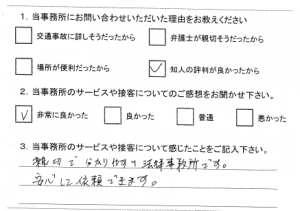 1. 当事務所にお問い合わせいただいた理由をお教えください
交通事故に詳しそうだったから
弁護士が親切そうだったから
場所が便利だったから
知人の評判が良かったから
2. 当事務所のサービスや接客についてのご感想をお聞かせ下さい。
非常に良かった
良かった
普通
悪かった
3. 当事務所のサービスや接客について感じたことをご記入下さい。
親切で分かりやすい法律事務所です。
安心して依頼できます。